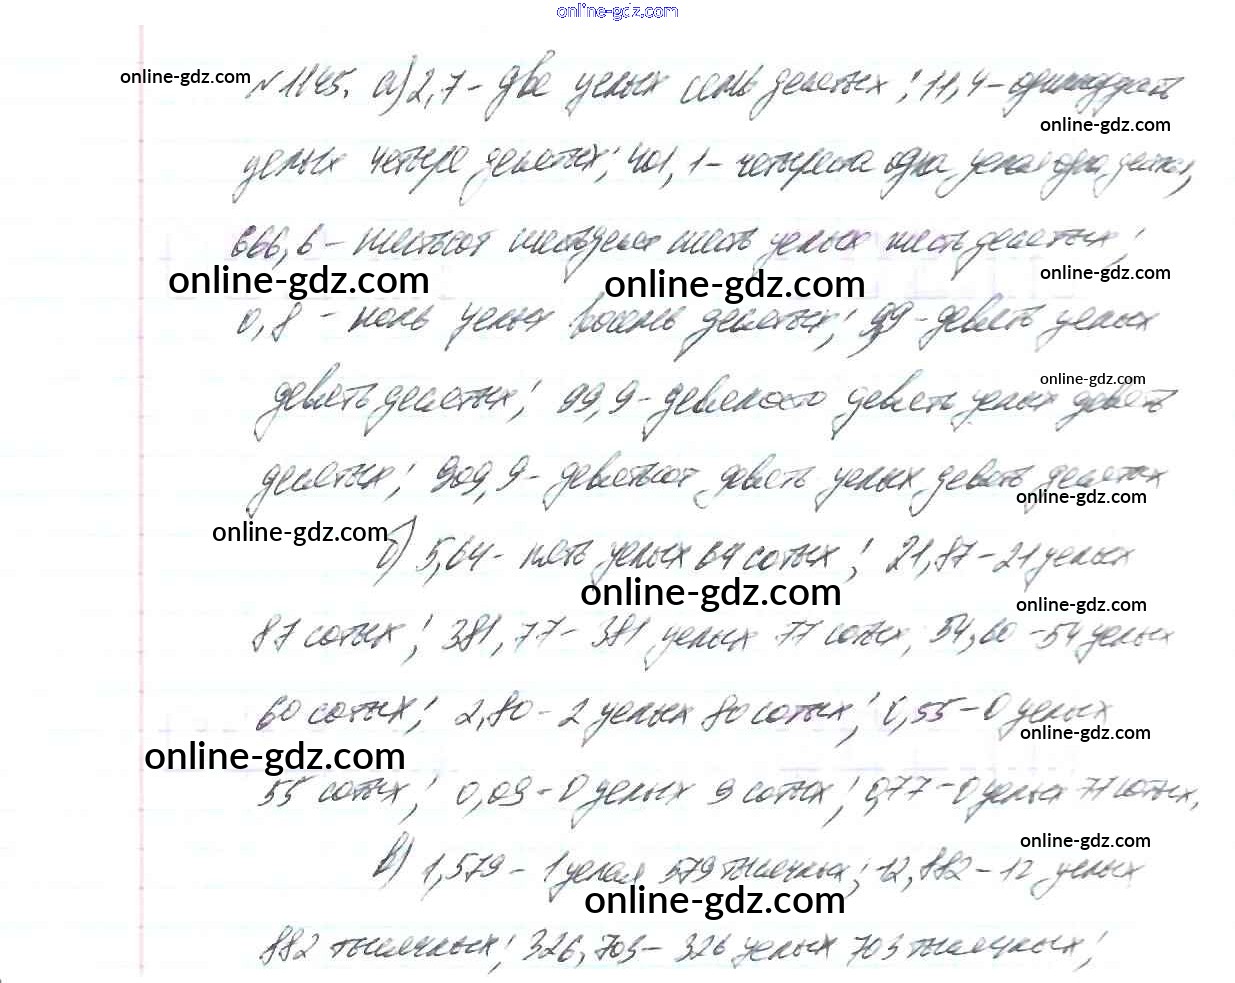 online-gdz.com
online-gdz.com
№1145. а) 2,7 – две целых семь десятых; 11,4 – одиннадцать
online-gdz.com
целых четыре десятых; 401,1 – четыреста одна целая одна десятая,
666,6 – шестьсот шестьдесят шесть целых шесть десятых;
online-gdz.com online-gdz.com online-gdz.com
0,8 – ноль целых восемь десятых; 9,9 – девять целых
online-gdz.com
девять десятых; 99,9 – девяносто девять целых девять
десятых; 909,9 – девятьсот девять целых девять десятых
online-gdz.com
online-gdz.com
б) 5,64 – пять целых 64 сотых; 21,87 – 21 целых
online-gdz.com online-gdz.com
87 сотых; 381,77 – 381 целых 77 сотых, 54,60 – 54 целых
60 сотых; 2,80 – 2 целых 80 сотых; 0,55 – 0 целых
online-gdz.com
online-gdz.com
55 сотых; 0,09 – 0 целых 9 сотых; 0,77 – 0 целых 77 сотых,
online-gdz.com
в) 1,579 – 1 целая 579 тысячных; 12,882 – 12 целых
online-gdz.com
882 тысячных; 326,703 – 326 целых 703 тысячных;